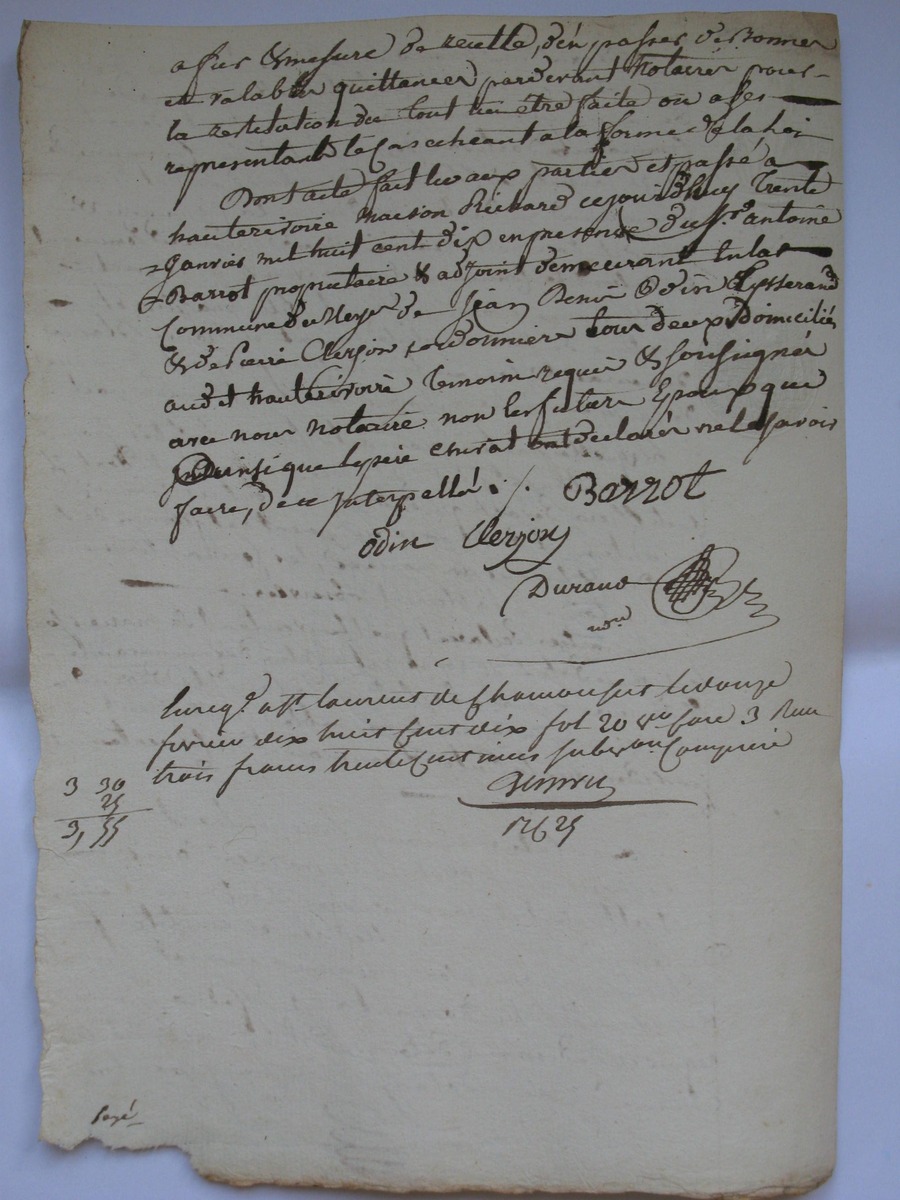 a fur & mesure de recette, d'en passer de Bonnes
et valables quittances pardevant Notaires pour
la restitution du tout en être faite ou a ses
representants le cas echeant a la forme de la Loi
Dont acte fait lu aux parties et passé a
hauterivoire maison Richard cejourd'huy trente
Janvier mil huit cent dix en presence du Sr. antoine
Barrot propriétaire & adjoint demeurant en la
Commune de Meys de Jean Denis Odin tysserand
& de Pierre Clerjon cordonnier tous deux Domiciliés
audit hauterivoire temoins requis & soussignés
avec nous notaire non les futurs Epoux que
ainsi que le pere ont declarés ne le savoir
faire, de ce Interpellé ./.
Barrot
odin Clerjon
Durand
nore
Enregé a St laurent de Chamousset le douze
fevrier dix huit cent dix fol 20 vo case 3 Reçu
trois francs trente subvon Comprise
3 30
25
3,55
payé